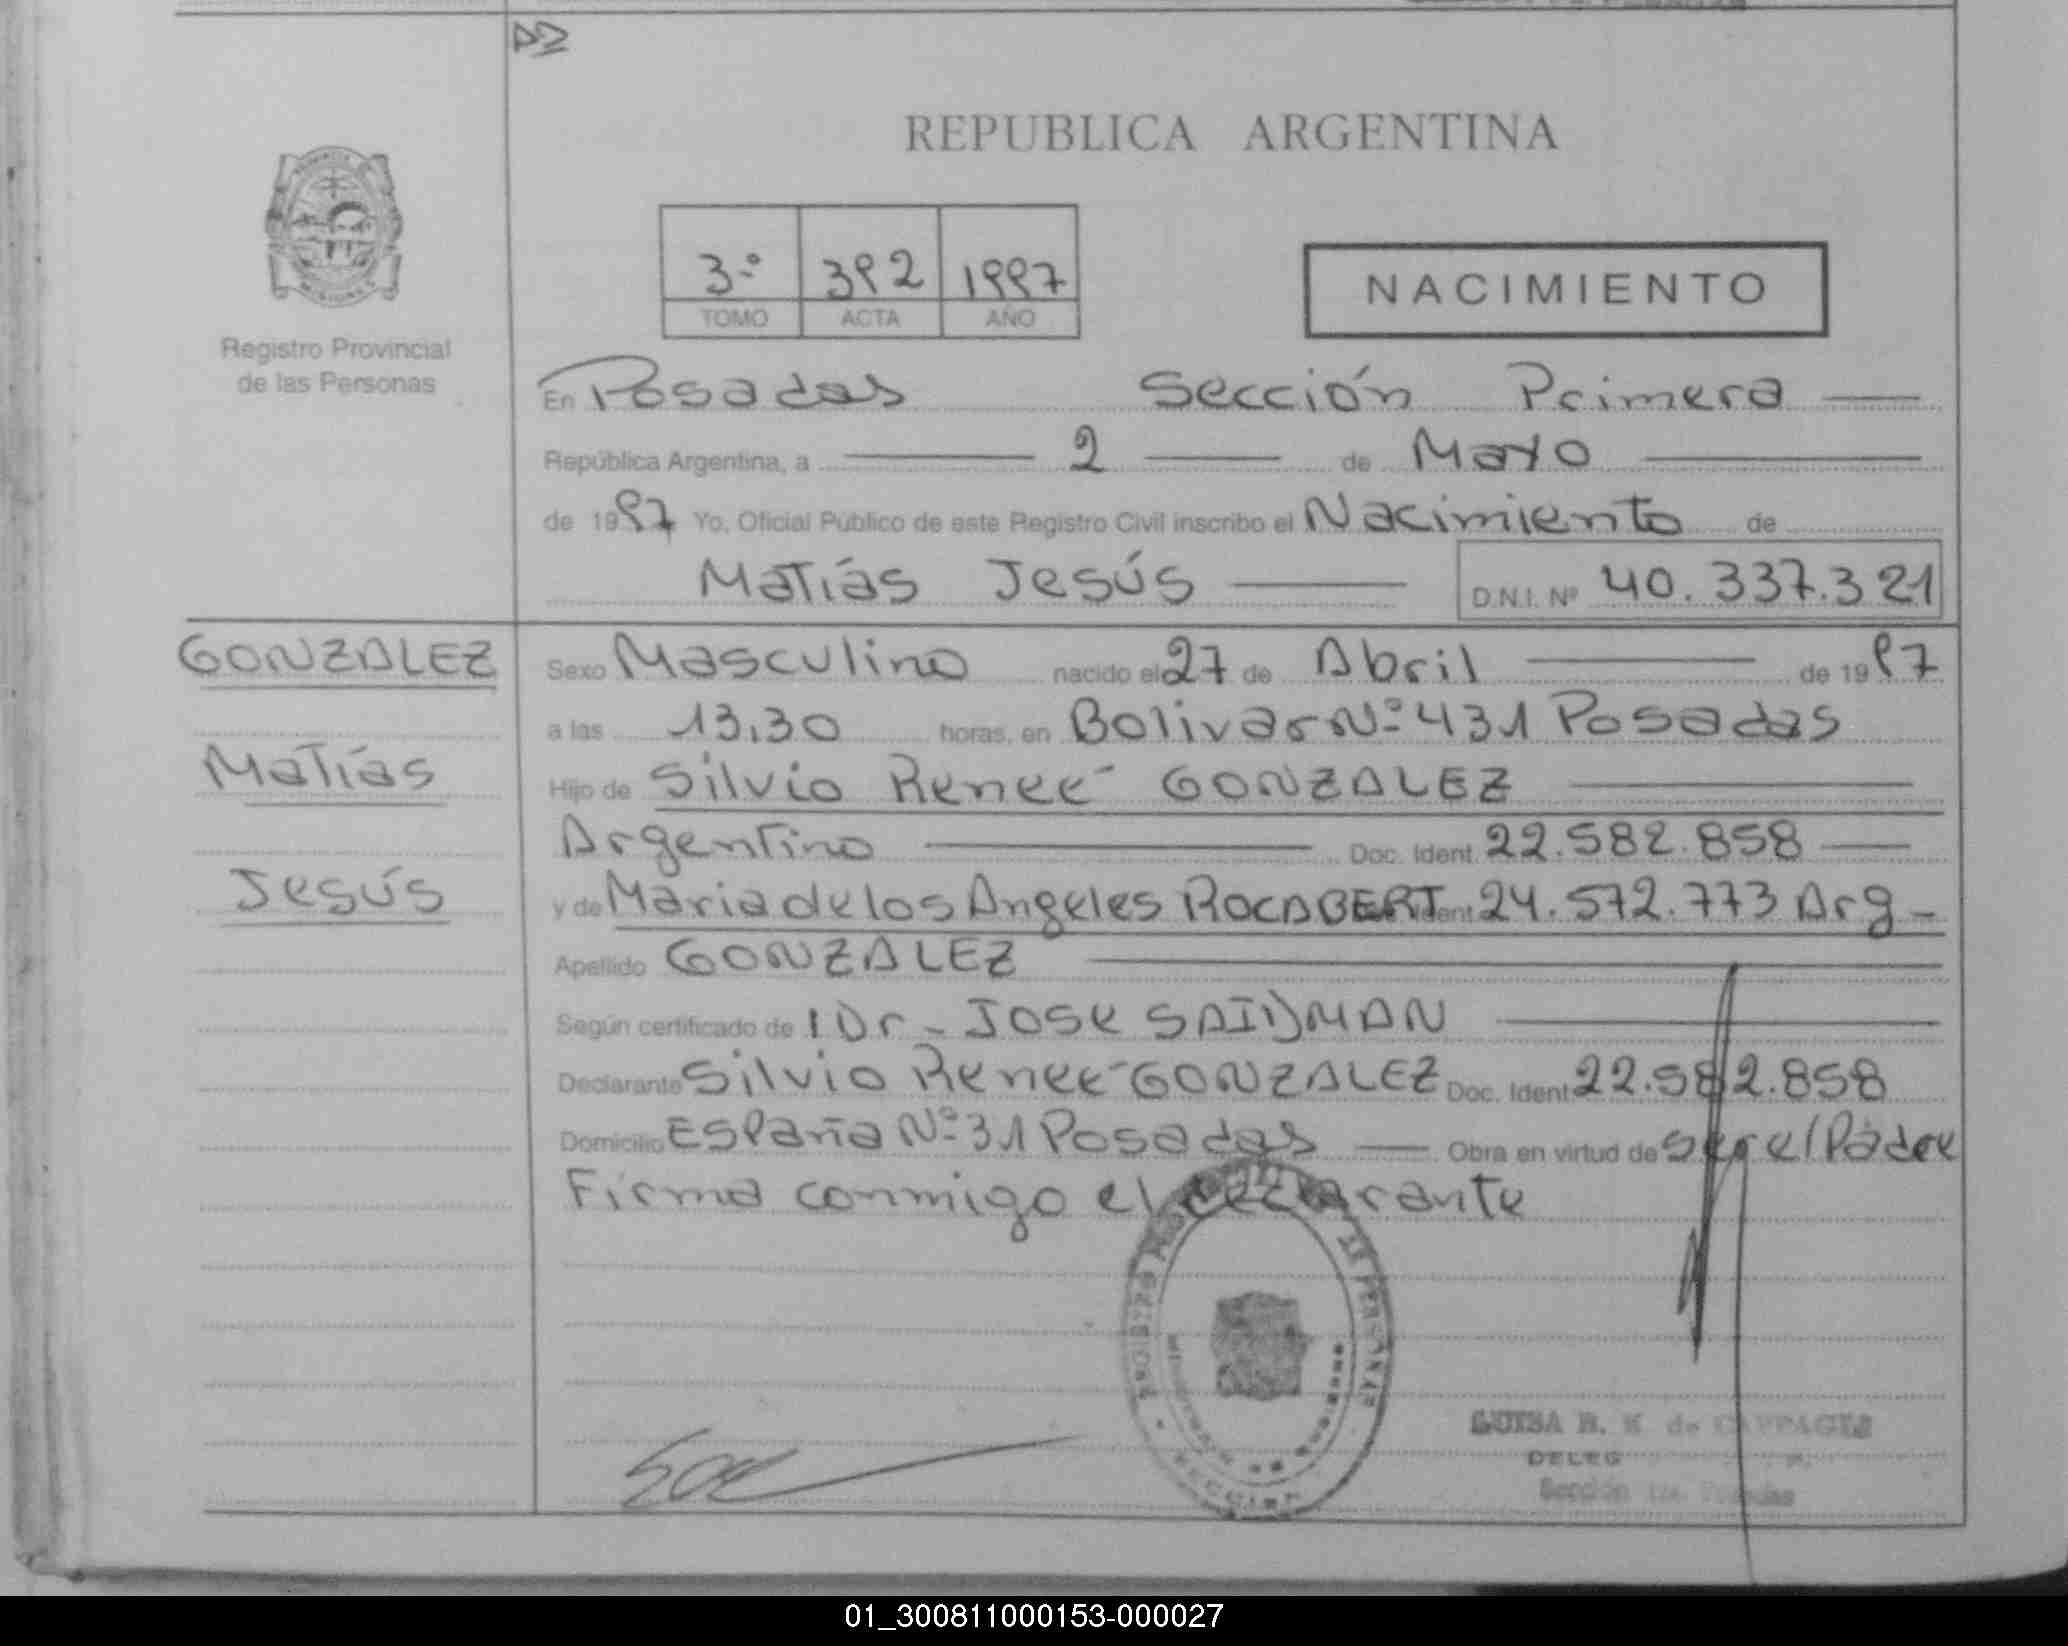 REPUBLICA ARGENTINA
3º 392 1997
TOMO ACTA AÑO
NACIMIENTO
Registro Provincial
de las Personas
En Posadas Sección Primera
República Argentina, a 2 de Mayo
de 1997 Yo, Oficial Público de este Registro Civil inscribo el Nacimiento de
Matías Jesús D.N.I. Nº 40.337.321
GONZALEZ
Matías
Jesús
Sexo Masculino nacido el 27 de Abril de 1997
a las 13,30 horas, en Bolivar Nº 431 Posadas
Hijo de Silvio Reneé GONZALEZ
Argentino Doc. Ident. 22.582.858
y de Maria de los Angeles ROCABERT Ident 24.572.773 Arg
Apellido GONZALEZ
Según certificado de Dr. JOSE SAIDMAN
Declarante Silvio Reneé GONZALEZ Doc. Ident 22.582.858
Domicilio España Nº 31 Posadas Obra en virtud de ser el Padre
Firma conmigo el declarante
LUISA B. K de
DELEG
Sección 1ra. Posadas
01_300811000153-000027